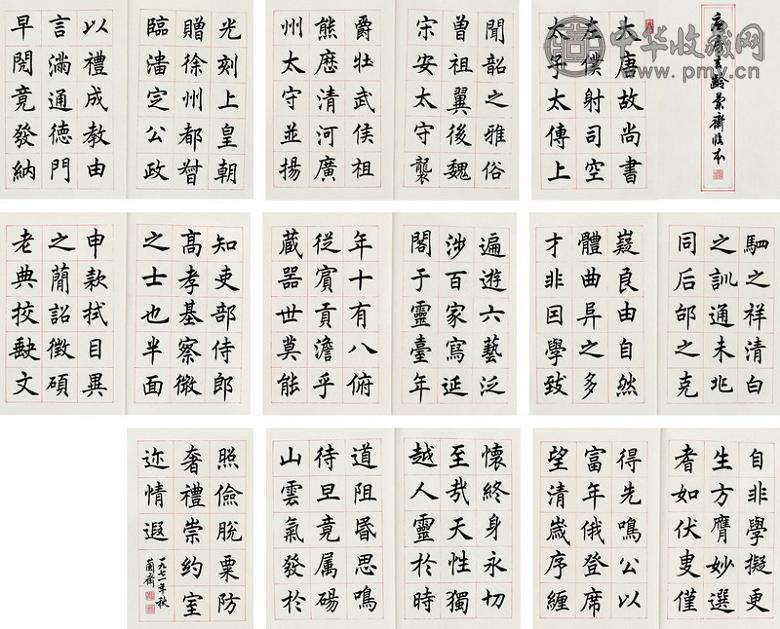 中华收藏网
www.pmy.cn
玄齡 蘭齋臨本
大唐故尚書
左僕射司空
太子太傅上
聞韶之雅俗
曾祖翼後魏
宋安太守襲
爵壮武侯祖
熊歷清河廣
州太守並揚
光刻上皇朝
贈徐州都督
臨淄定公政
以禮成教由
言滿通德門
早閱竟發納
駟之祥清白
之訓通未兆
同后邰之克
嶷良由自然
體曲異之多
才非因學致
遍遊六藝泛
涉百家寫延
閣于靈臺年
年十有八俯
從賓貢澹乎
藏器世莫能
知吏部侍郎
髙孝基察微
之士也半面
申款拭目異
之蘭詔徵碩
老典挍黻文
自非學擬更
生方膺妙選
耆如伏叟僅
得先鳴公以
富年俄登席
望清歲序纏
懷終身永切
至哉天性獨
越人靈於時
道阻昏思鳴
待旦竟属碭
山雲氣發於
照儉脫粟防
奢禮崇約室
迩情遐
一九七一年秋
蘭齋